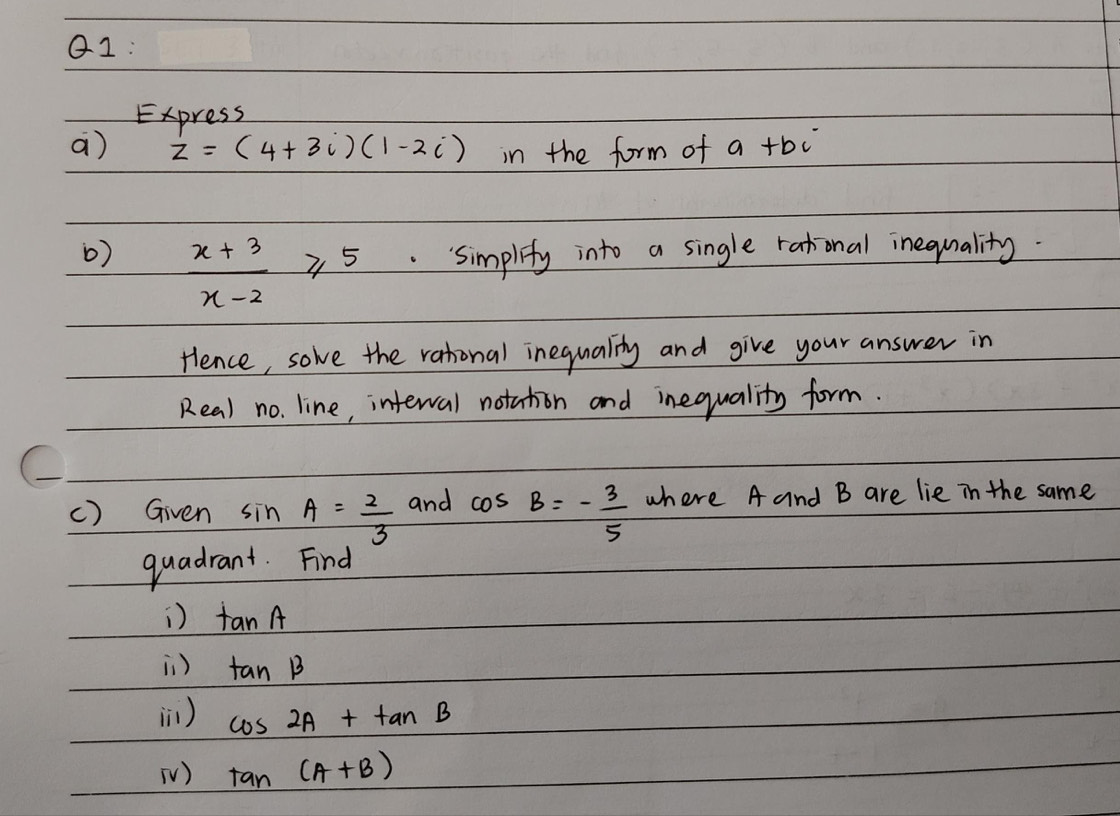 Q1:
Express
a) z = (4+3i)(1-2i) in the form of a +bi
b) x + 3 / x - 2 ⩾ 5 . Simplify into a single rational inequality.
Hence, solve the rational inequality and give your answer in
Real no. line, interval notation and inequality form.
c) Given sin A = 2/3 and cos B = - 3/5 where A and B are lie in the same
quadrant. Find
i) tan A
ii) tan B
iii) cos 2A + tan B
iv) tan (A+B)